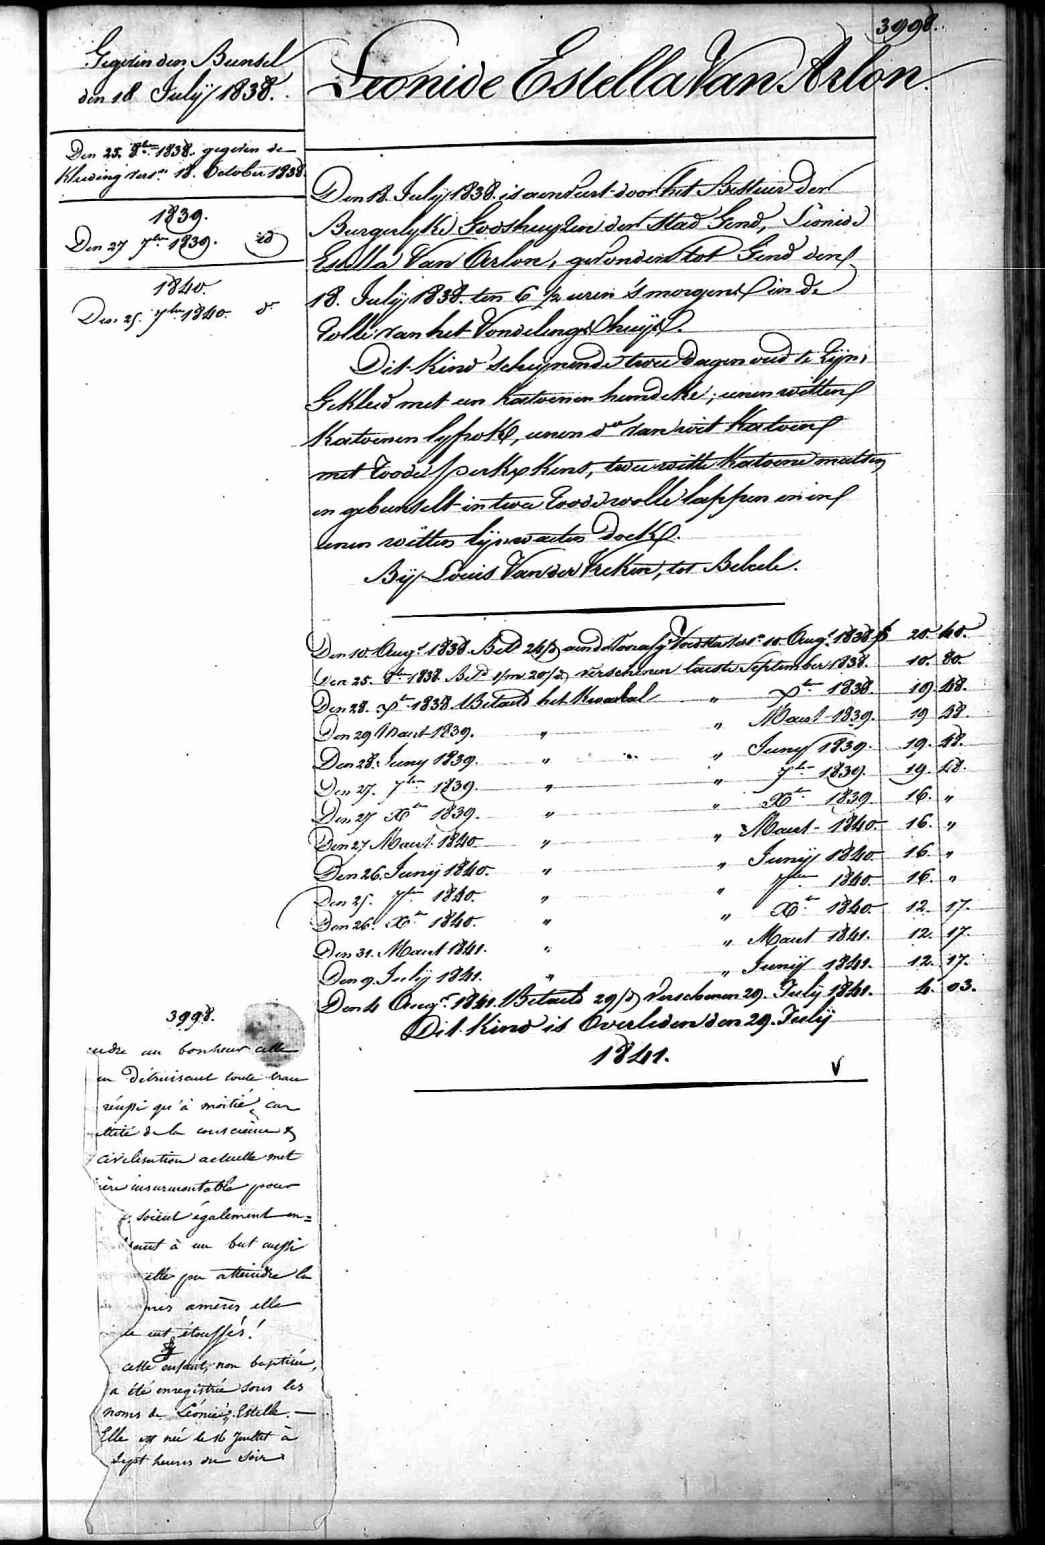 3998.
Gegeven den Bunsel
den 18 July 1838.
Den 25. 8ber 1838. gegeven de
Kleeding vers.n 18. October 1838
1839.
Den 27 7ber 1839. id
1840.
Den 25. 7ber 1840. do
Leonide Estella Van Arlon.
Den 18. July 1838. is aenveert door het Bestuer der
Burgerlyke Godshuyzen der Stad Gend, Leonide
Estella Van Arlon, gevonden tot Gend den
18. July 1838. ten 6 1/2 uren 's morgens in de
Rolle van het Vondelingshuys.
Dit Kind schynende twee dagen oud te zyn,
Gekleed met een katoenen hemdeke; eenen witten
katoenen lyfrok, eenen do van wit katoen
met roode perkxkens, twee witte katoene mutsen
en gebunselt in twee roode wolle lappen en in
eenen witten lynwaeten doek.
By Louis Van der Vreken, tot Belcele.
Den 10. Augt 1838. Betd 24/d aen de Voorafg Voedster vers.n 10. Augt 1838 f 20. 40.
Den 25. 8ber 1838. Betd 1/m 20/d verschenen laeste September 1838. 10. 80.
Den 28. Xber 1838. Betaeld het Kwartael " Xber 1838. 19 48.
Den 29 Maert 1839. " " Maert 1839. 19 48.
Den 28. Juny 1839. " " Juny 1839. 19. 48.
Den 27. 7ber 1839. " " 7ber 1839. 19. 48.
Den 27 Xber 1839. " " Xber 1839. 16. "
Den 27 Maert 1840. " " Maert 1840. 16. "
Den 26. Juny 1840. " " Juny 1840. 16. "
Den 25. 7ber 1840. " " 7ber 1840. 16. "
Den 26. Xber 1840. " " Xber 1840. 12. 17.
Den 31. Maert 1841. " " Maert 1841. 12. 17.
Den 9. July 1841. " " Juny 1841. 12. 17.
Den 4 Augt 1841. Betaeld 29/d verschenen 29. July 1841. 4. 03.
Dit Kind is Overleden den 29. July
1841.
3998.
endre au bonheur elle
en détruisant toute trace
réussi qu'à moitié, car
de la conscience &
civilisation actuelle met
ière insurmontable pour
soient également en=
à un but aussi
elle pu atteindre la
amères elle
eut étouffés!
cette enfant, non baptisée,
a été enregistrée sous les
noms de Léonide, Estelle. —
Elle est née le 16 Juillet à
Sept heures du soir